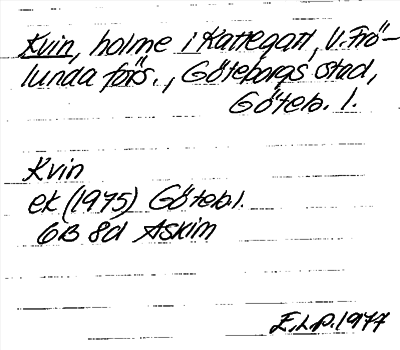 Kvin, holme i Kattegatt, V. Frö-
lunda förs., Göteborgs stad,
Göteb. l.
Kvin
ek (1975) Göteb l.
6B 8d Askim
E.L.P. 1977